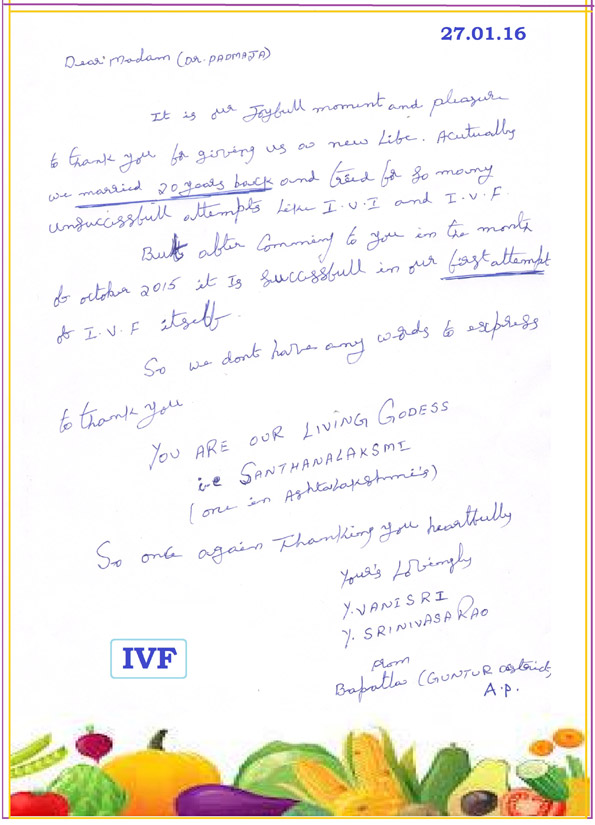 27.01.16
Dear Madam (Dr. PADMAJA)
It is our Joyfull moment and pleasure
to thank you for giving us a new life. Acutually
we married 20 years back and tried for so many
unsuccissfull attempts like I.V.I and I.V.F.
But after Comming to you in the month
of october 2015 it Is successfull in our first attempt
of I.V.F itself.
So we dont have any words to express
to thank you
YOU ARE OUR LIVING GODESS
i.e SANTHANALAKSMI
(one in Ashtalakshmi's)
So once again Thanking you heartfully
Your's Lovingly
Y.VANISRI
Y. SRINIVASA RAO
from
Bapatla (GUNTUR district,
A.p.
IVF